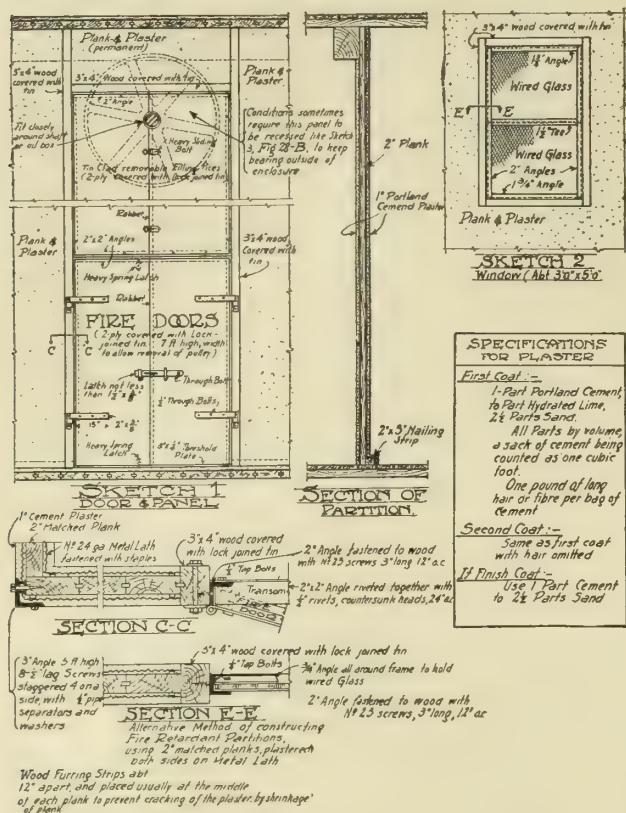 Plank & Plaster
(permanent)
3"x4" wood
covered with
tin
3"x4" Wood covered with tin
Plank &
Plaster
2" Angle
Fit closely
around shaft
or oil box
Heavy Sliding
Bolt
(Conditions sometimes
require this panel to
be recessed like Sketch
3, Fig 28-B, to keep
bearing outside of
enclosure
Tin Clad removable Filling Pieces
(2-ply covered with Lock joined tin)
Rabbet
Plank &
Plaster
2"x2" Angles
3"x4" wood
Covered with
tin
Heavy Spring Latch
Rabbet
FIRE DOORS
(2-ply covered with Lock-
joined tin. 7 ft high, width
to allow removal of pulley)
C C
Latch not less
than
Through Bolt
Through Bolts
Heavy Spring
Latch
Threshold
Plate
SKETCH 1
DOOR & PANEL
2" Plank
1" Portland
Cement Plaster
2"x3" Nailing
Strip
SECTION OF
PARTITION.
3"x4" wood covered with tin
Angle
Wired Glass
E E'
1½" Tee
Wired Glass
2" Angles
1¾" Angle
Plank &
Plaster
SKETCH 2
Window (Abt 3'0" x 5'0"
SPECIFICATIONS
FOR PLASTER
First Coat :-
1-Part Portland Cement,
to Part Hydrated Lime,
2½ Parts Sand.
All Parts by volume,
a sack of cement being
counted as one cubic
foot.
One pound of long
hair or fibre per bag of
cement
Second Coat :-
Same as first coat
with hair omitted
If Finish Coat :-
Use 1 Part Cement
to 2½ Parts Sand
1" Cement Plaster
2" Matched Plank
Nº 24 ga Metal Lath
fastened with staples
3"x4" wood covered
with lock joined tin
2" Angle fastened to wood
with Nº 23 screws 3" long 12" o.c
Tap Bolts
Transom
2"x2" Angle riveted together with
rivets, countersunk heads, 24" o.c
FIRE
DOOR
SECTION C-C
3" Angle 5 ft high
lag Screws
staggered 4 on a
side, with pipe
separators and
washers
3"x4" wood covered with lock joined tin
Tap Bolts
¾" Angle all around frame to hold
wired Glass
2" Angle fastened to wood with
Nº 23 screws, 3" long, 12" o.c
SECTION E-E
Alternative Method of constructing
Fire Retardant Partitions,
using 2" matched planks, plastered
both sides on Metal Lath
Wood Furring Strips abt
12" apart, and placed usually at the middle
of each plank to prevent cracking of the plaster, by shrinkage
of plank